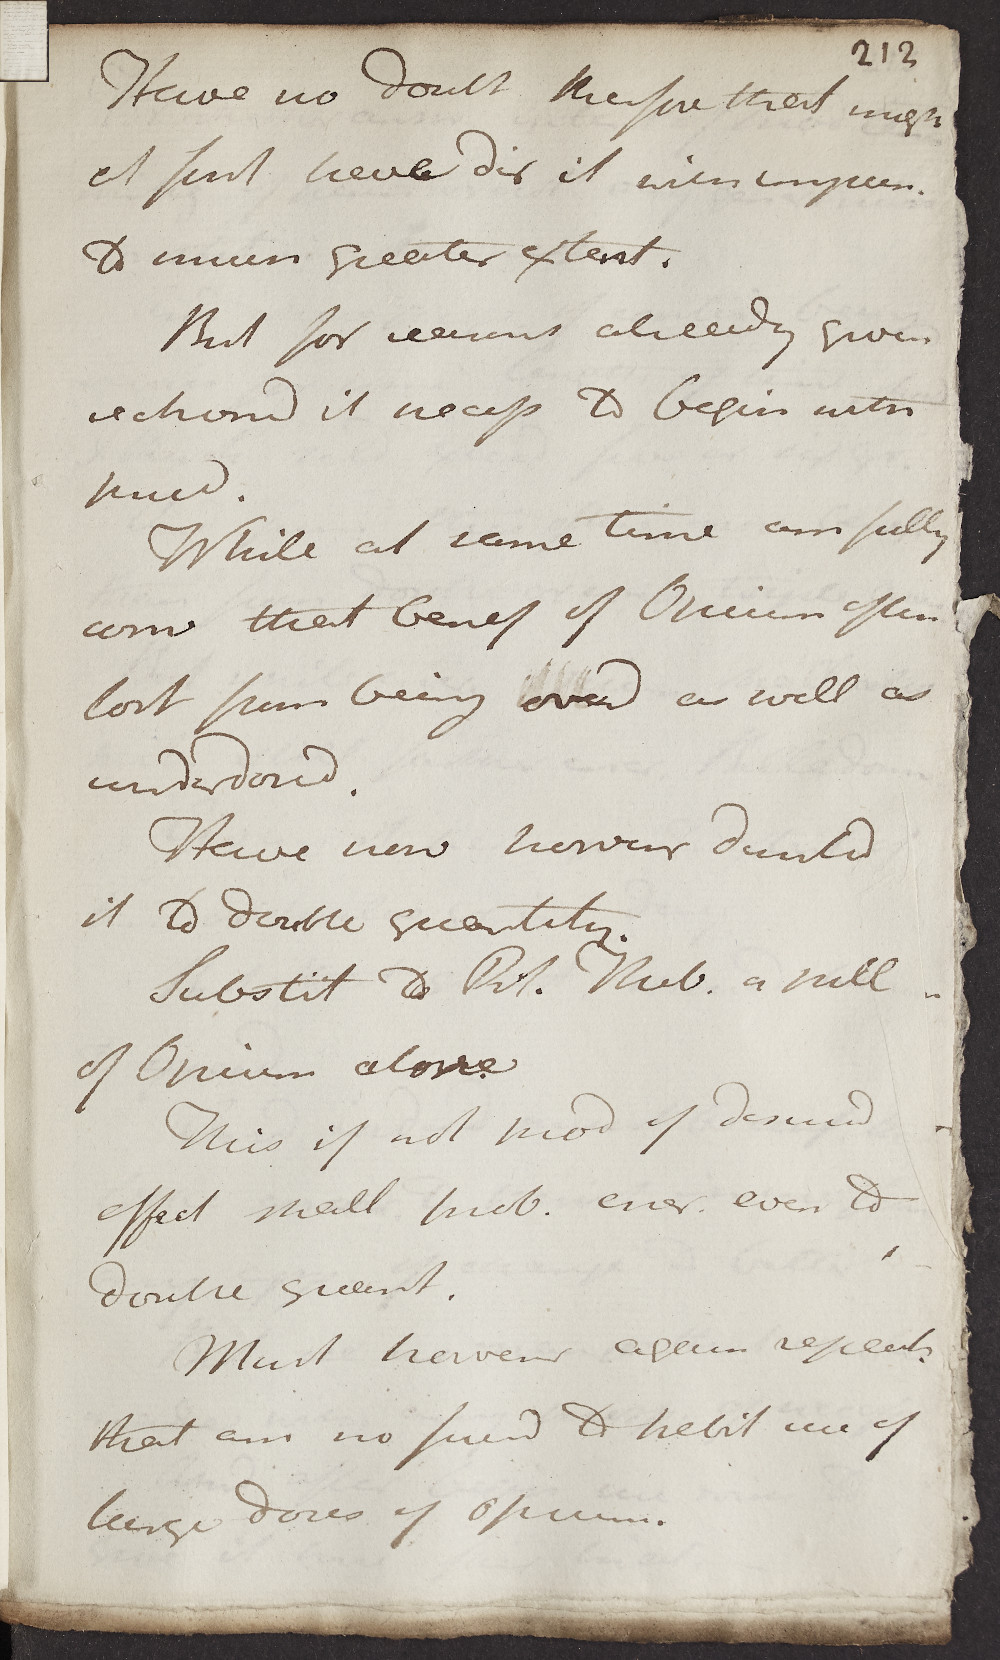 212
Have no doubt therefore that migh
at first have dir it with impun.
to much greater extent.
But for reasons already given
rechond it necess to begin with
smed.
While at same time am fully
conv that benef of Opium often
lost from being overd as well as
underdosed.
Have now however
it to double quantity.
Substit to Pil. Theb. a pill
of Opium alone
This if not prod of desired
effect shall prob. encr. even to
double quant.
Must however again repeat
that am no friend to habit use of
large doses of opium.